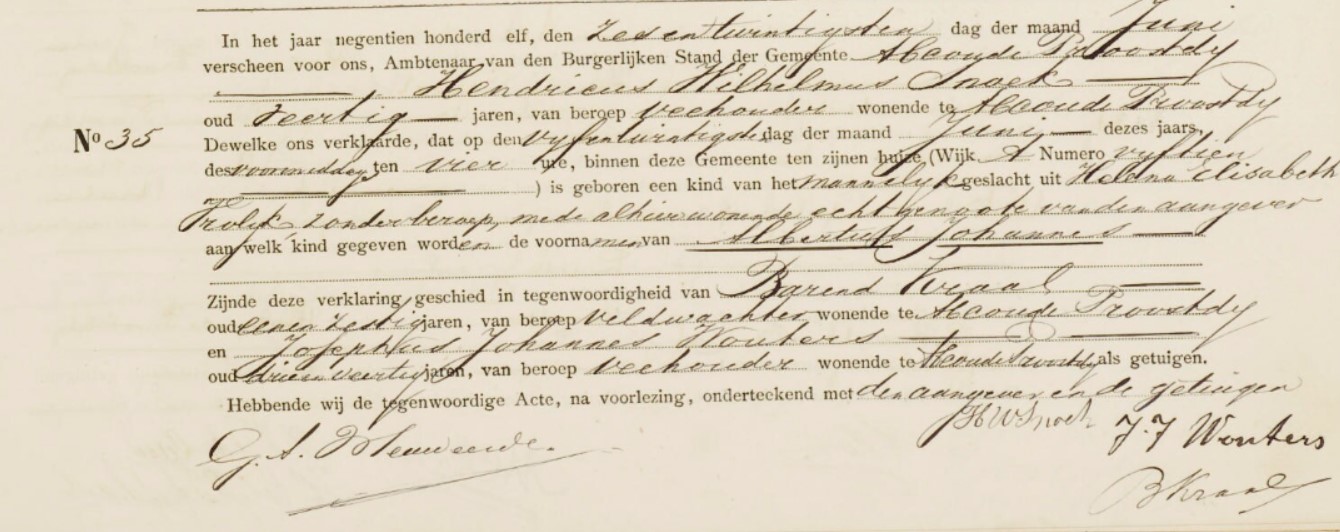 In het jaar negentien honderd elf, den zes en twintigsten dag der maand Juni
verscheen voor ons, Ambtenaar van den Burgerlijken Stand der Gemeente Abcoude Proostdy
Hendricus Wilhelmus Snoek
oud veertig jaren, van beroep veehouder wonende te Abcoude Proostdy
No 35
Dewelke ons verklaarde, dat op den vyfentwintigsten dag der maand Juni dezes jaars,
des voormiddags ten vier ure, binnen deze Gemeente ten zijnen huize, (Wijk A Numero vyftien
) is geboren een kind van het mannelyk geslacht uit Helena Elisabeth
zonder beroep, mede alhier wonende echtgenoote van den aangever
aan welk kind gegeven worden de voornamen van Albertus Johannes
Zijnde deze verklaring geschied in tegenwoordigheid van Barend Kraal
oud eenen zestig jaren, van beroep veldwachter wonende te Abcoude Proostdy
en Josephus Johannes Wouters
oud drieenveertig jaren, van beroep veehouder wonende te Abcoude Proostdy als getuigen.
Hebbende wij de tegenwoordige Acte, na voorlezing, onderteekend met den aangever en de getuigen
HWSnoek
J.J Wouters
G. A.
BKraal